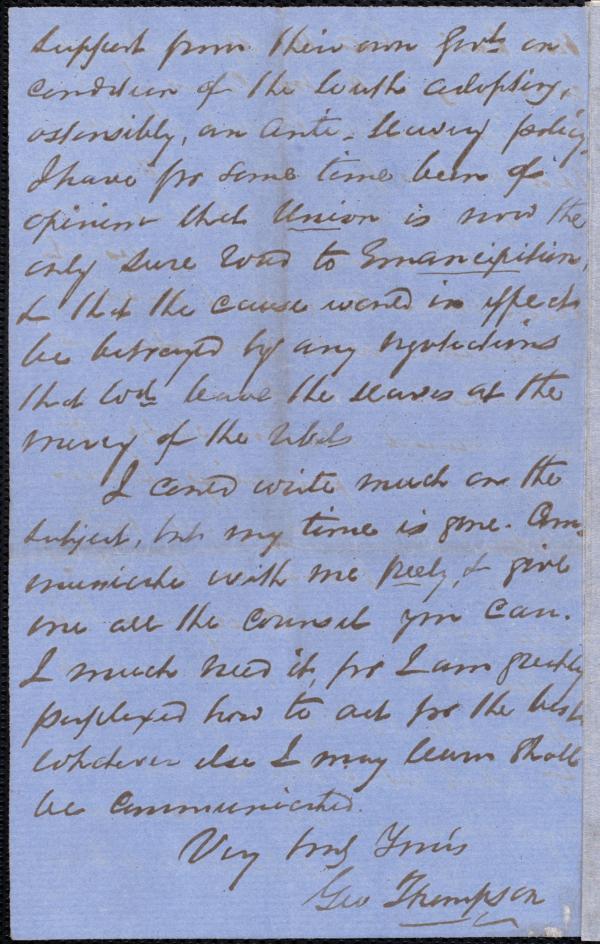 support from their own Govt. on
condition of the South adopting,
ostensibly, an anti-slavery policy.
I have for some time been of
opinion that Union is now the
only sure road to Emancipation,
& that the cause would in effect
be betrayed by any negotiations
that wod. leave the slaves at the
mercy of the rebels
I could write much on the
subject, but my time is gone. Com-
municate with me freely, & give
me all the counsel you can.
I much need it, for I am greatly
perplexed how to act for the best.
Whatever else I may learn shall
be communicated.
Very truly Yours
Geo Thompson